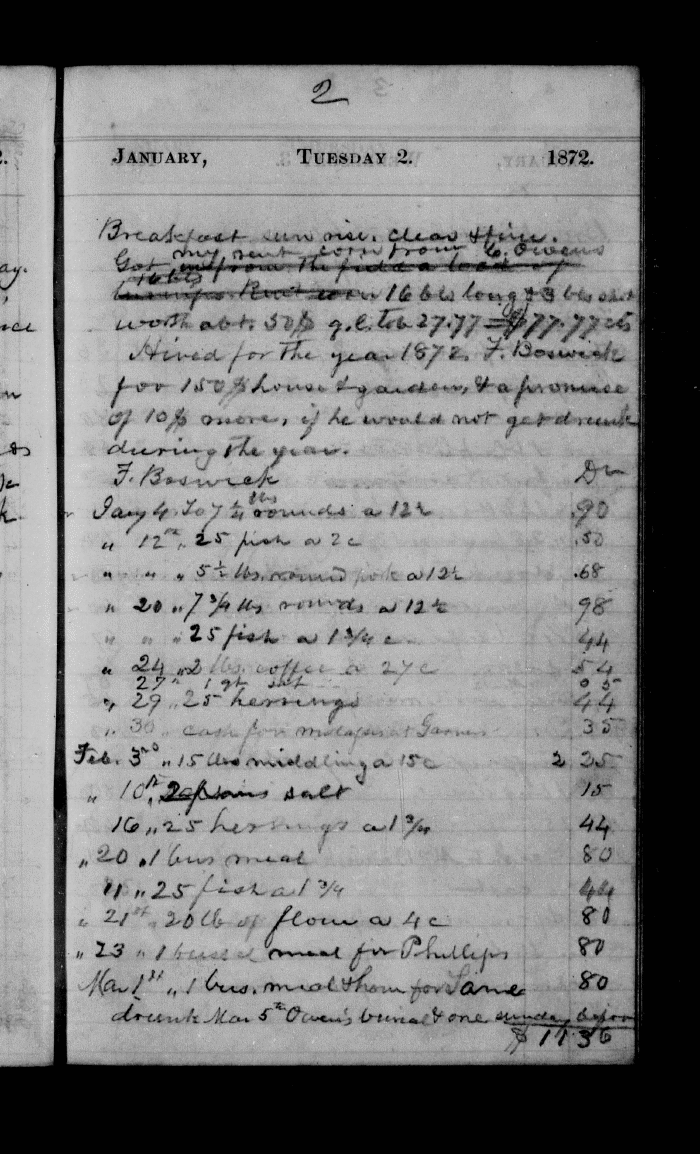 2
JANUARY, TUESDAY 2. 1872.
Breakfast sun rise. clear & fine.
my rent corn from C. Owens
Got from the field a load of
16 bls long & 3 bls short
worth abt. 50$ g.c. tob 27.77 = $77.77 cts
Hired for the year 1872. F. Boswick
for 150$ house & garden, & a promise
of 10$ more, if he would not get drunk
during the year.
F. Boswick Dr
Jany 4 To 7 1/4 lbs rounds a 12½ .90
" 12th " 25 fish a 2c .50
" " " 5½ lbs. round pork a 12½ .68
" 20 " 7 3/4 lbs rounds a 12½ 98
" " " 25 fish a 1 3/4 c 44
" 24 " 2 lbs. coffee a 27c 54
27 " 1 qt salt 05
" 29 " 25 herrings 44
" 30 " cash for 35
Feb. 3rd " 15 lbs middling a 15c 2 25
" 10th " salt 15
16 " 25 herrings a 1 3/4 44
" 20 " 1 bus meal 80
11 " 25 fish a 1 3/4 44
" 21st " 20 lb of flour a 4c 80
" 23 " 1 bussel meal for Phillips 80
Mar 1st " 1 bus. meal & hom for Same 80
drunk Mar 5th Owen's burial & one sunday before
$ 11 36